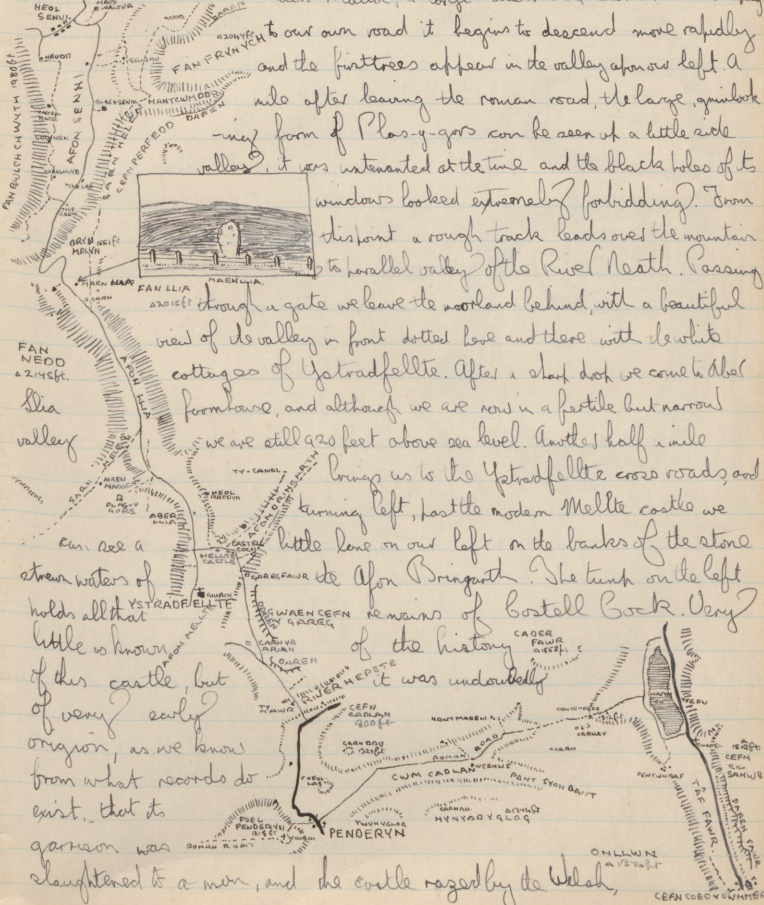 to our own road it begins to descend more rapidly
and the first trees appear in the valley upon our left. A
mile after leaving the roman road, the large, grim look
-ing farm of Plas-y-gors can be seen up a little side
valley, it was untenanted at the time and the black holes of its
windows looked extremely forbidding. From
this point a rough track leads over the mountain
to parallel valley of the River Neath. Passing
through a gate we leave the moorland behind, with a beautiful
view of the valley in front dotted here and there with the white
cottages of Ystradfellte. After a sharp drop we come to Aber
Llia farmhouse, and although we are now in a fertile but narrow
valley we are still 920 feet above sea level. Another half a mile
brings us to the Ystradfellte cross roads, and
turning left, past the modern Mellte castle we
can see a little lane on our left on the banks of the stone
strewn waters of the Afon Dringarth. The turn on the left
holds all that remains of Castell Cock. Very
little is known of the history
of this castle, but it was undoubtedly
of very early
origion, as we know
from what records do
exist, that its
garrison was
slaughtered to a man, and the castle razed by the Welsh,
HEOL SENNI
FAN FRYNYCH
FAN BULCH CHWYTH 1980ft
AFON SENNI
SARN HELEN
CEFN PERFEDD
BRYN MELYN
MAEN LLIA
FAN LLIA
MAEN LLIA
FAN NEDD
2145ft.
AFON LLIA
SARN HELEN
MAEN MADOC
PLAS-Y-GORS
ABER LLIA
TY-CANOL
AFON DRINGARTH
CASTELL COCH
MELLTE CASTLE
GAREG FAWR
CHURCH
YSTRADFELLTE
AFON MELLTE
GWAEN CEFN Y GAREG
CARN YR ARIAN
RIVER HEPSTE
CEFN CADLAN
CADER FAWR
GARN DDU
ROMAN ROAD
CWM CADLAN
PANT SYCHBANT
MYNYDD Y GLOG
FOEL PENDERYN
ROMAN ROAD
CHURCH
PENDERYN
LLWYN ON
TÂF FAWR
ONLLWN
CEFN COED Y CWMMER